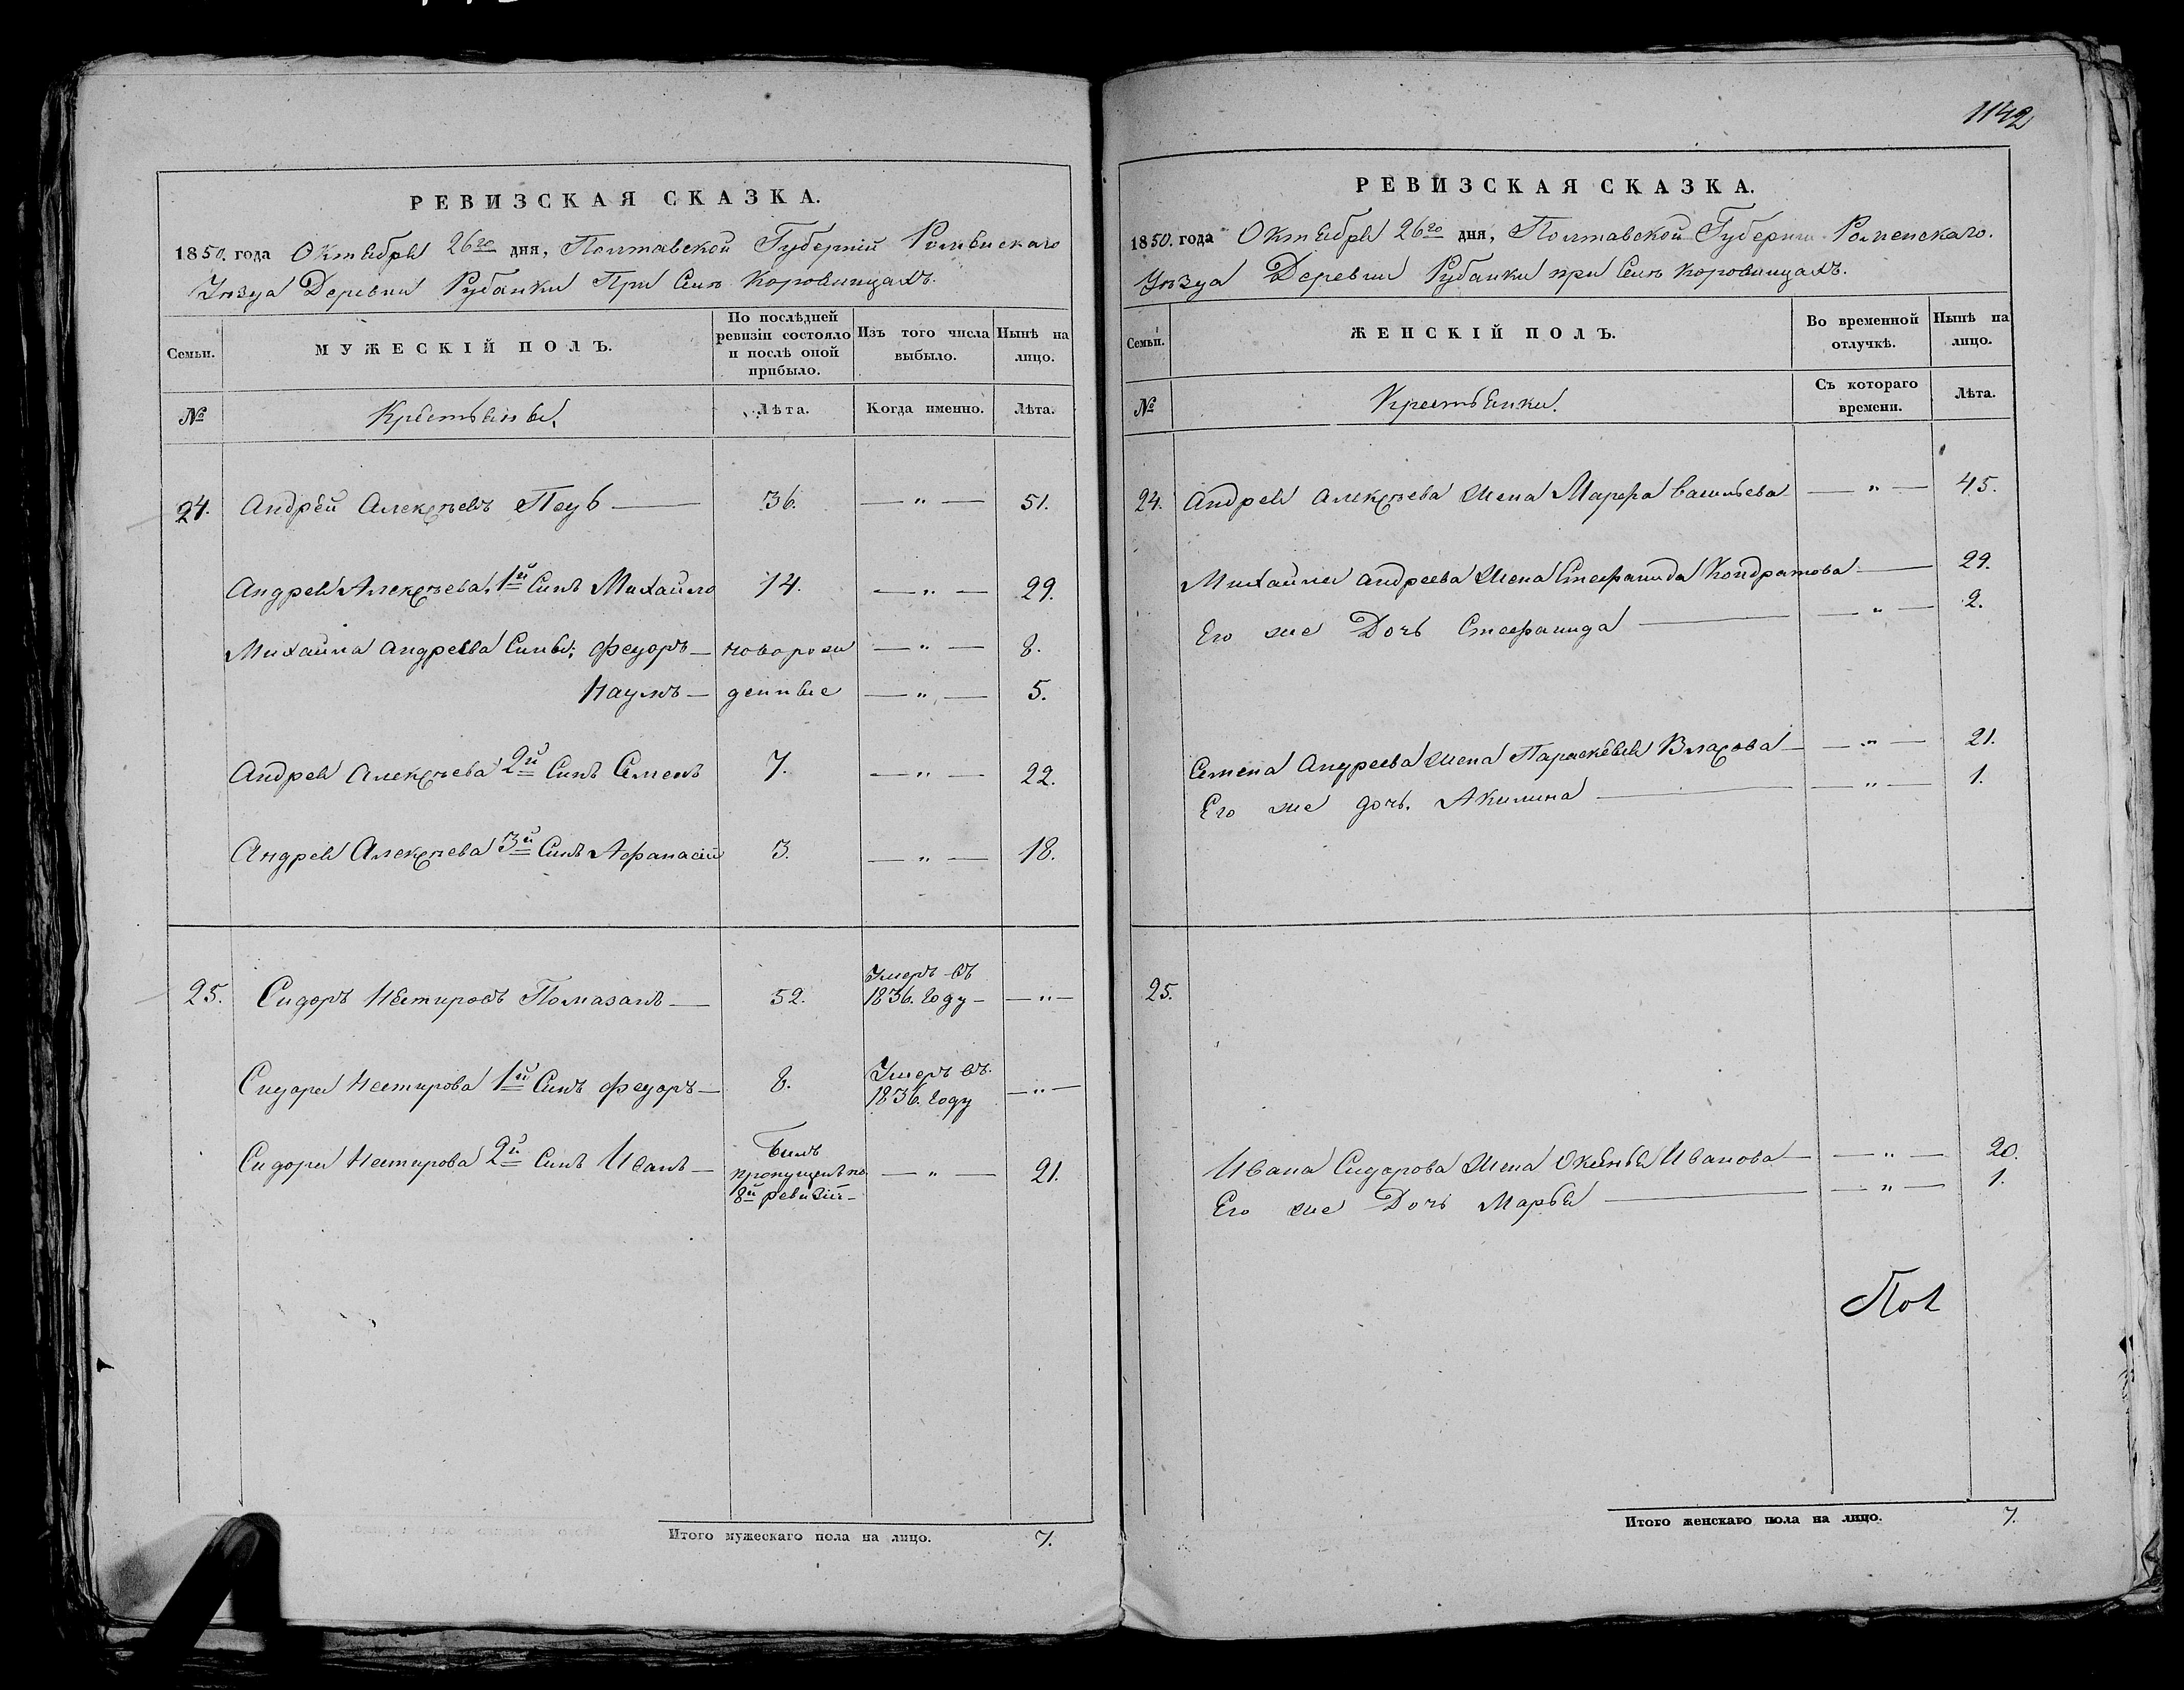 1142
РЕВИЗСКАЯ СКАЗКА.
1850. года Октября 26го дня, Полтавской Губернiи Роменскаго
Уѣзда Деревни Рубанки При Селѣ Коровинцахъ.
Семьи.
МУЖЕСКІЙ ПОЛЪ.
По послѣдней ревизіи состояло и послѣ оной прибыло.
Изъ того числа выбыло.
Нынѣ на лицо.
№
Крестьяне.
Лѣта.
Когда именно.
Лѣта.
24. Андрей Алексѣевъ 36. — " — 51.
Андрея Алексѣева, 1й Синъ Михайло 14. — " — 29.
Михайла Андреева Сины; Федоръ — новорож — " — 8.
Наумъ — денные — " — 5.
Андрея Алексѣева 2й Синъ Семенъ 7. — " — 22.
Андрея Алексѣева 3й Синъ Афанасій 3. — " — 18.
25. Сидоръ Нестировъ Помазанъ — 52. Умеръ въ 1836. Году — — " —
Сидора Нестирова 1й Синъ Федоръ — 8. Умеръ въ 1836. Году — " —
Сидора Нестирова 2й Синъ Иванъ — Былъ пропущенъ по 8й ревизіи — — " — 21.
Итого мужескаго пола на лицо. 7.
РЕВИЗСКАЯ СКАЗКА.
1850. года Октября 26го дня, Полтавской Губернии Роменскаго.
Уѣзда Деревни Рубанки при Селѣ Коровинцахъ.
Семьи.
ЖЕНСКІЙ ПОЛЪ.
Во временной отлучкѣ.
Нынѣ на лицо.
№
Крестьянки.
Съ котораго времени.
Лѣта.
24. Андрея Алексѣева Жена Марфа Васильева — " — 45.
Михайла Андреева Жена Стефанида Кондратова — 29.
Его же Дочь Стефанида — — " — 2.
Семена Андреева Жена Параскевия Власова — — " — 21.
Его же дочь. Акилина — — " — 1.
25.
Ивана Сидорова Жена Оксенья Иванова — — " — 20.
Его же Дочь Марья — — " — 1.
Итого женскаго пола на лицо. 7.